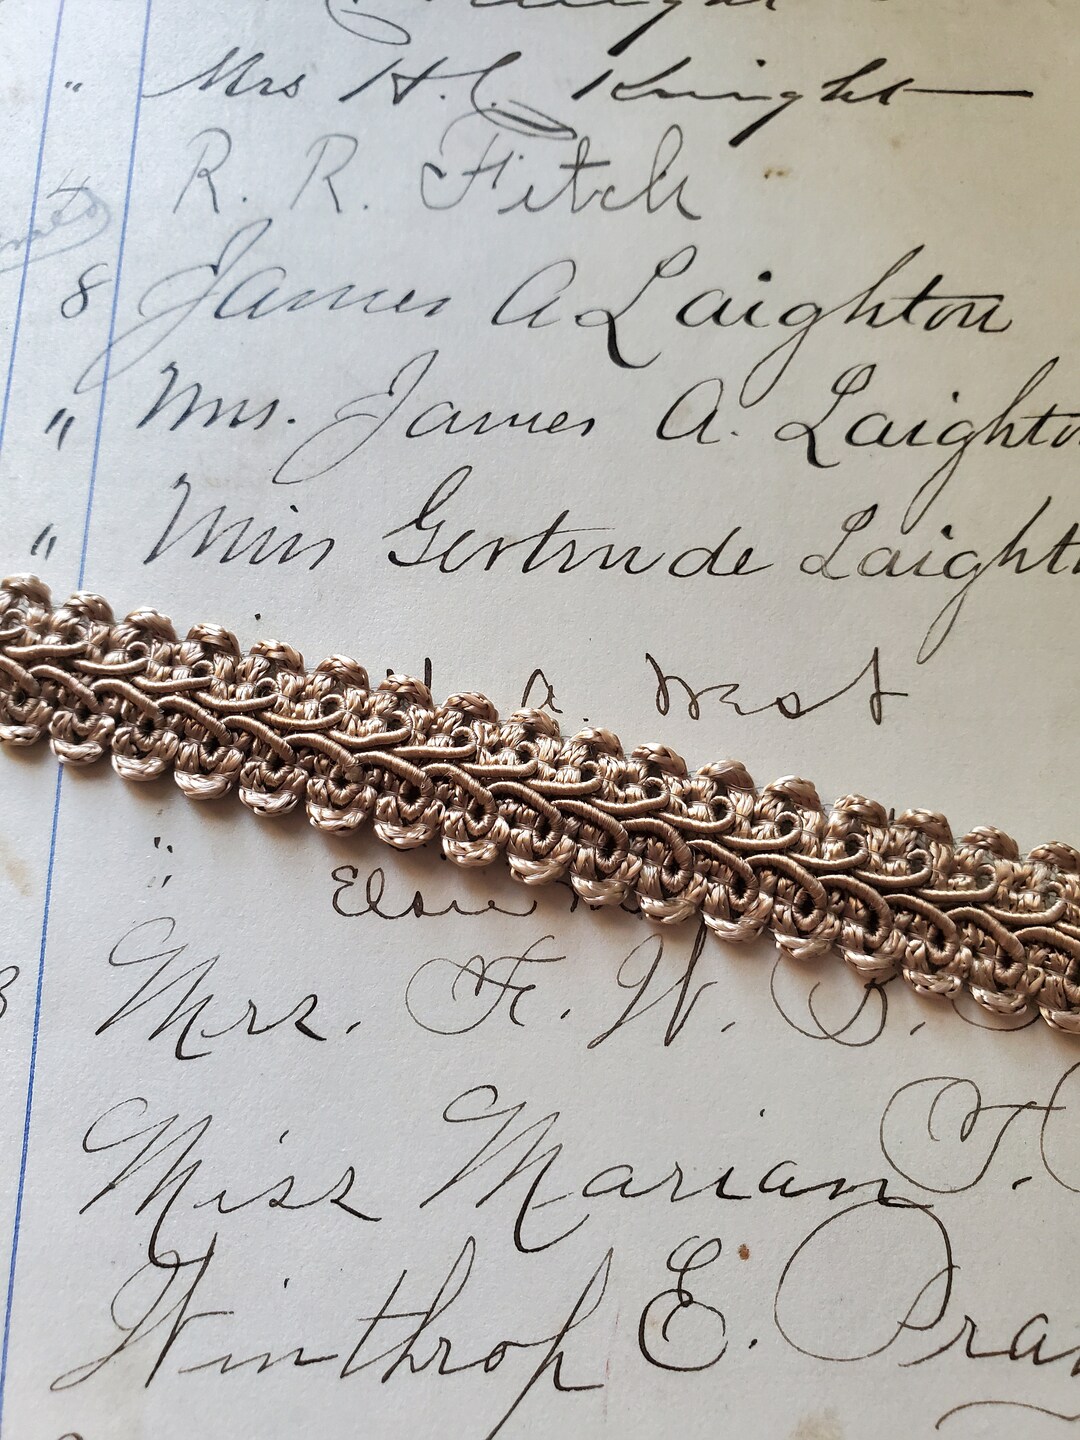 Knight
" Mrs H. C. Knight
R. R. Fitch
8 James A Laighton
" Mrs. James A. Laighton
" Miss Gertrude Laight
A. West
"
Elsie
Mrs. F. W. D.
Miss Marian T.
Winthrop E. Pra